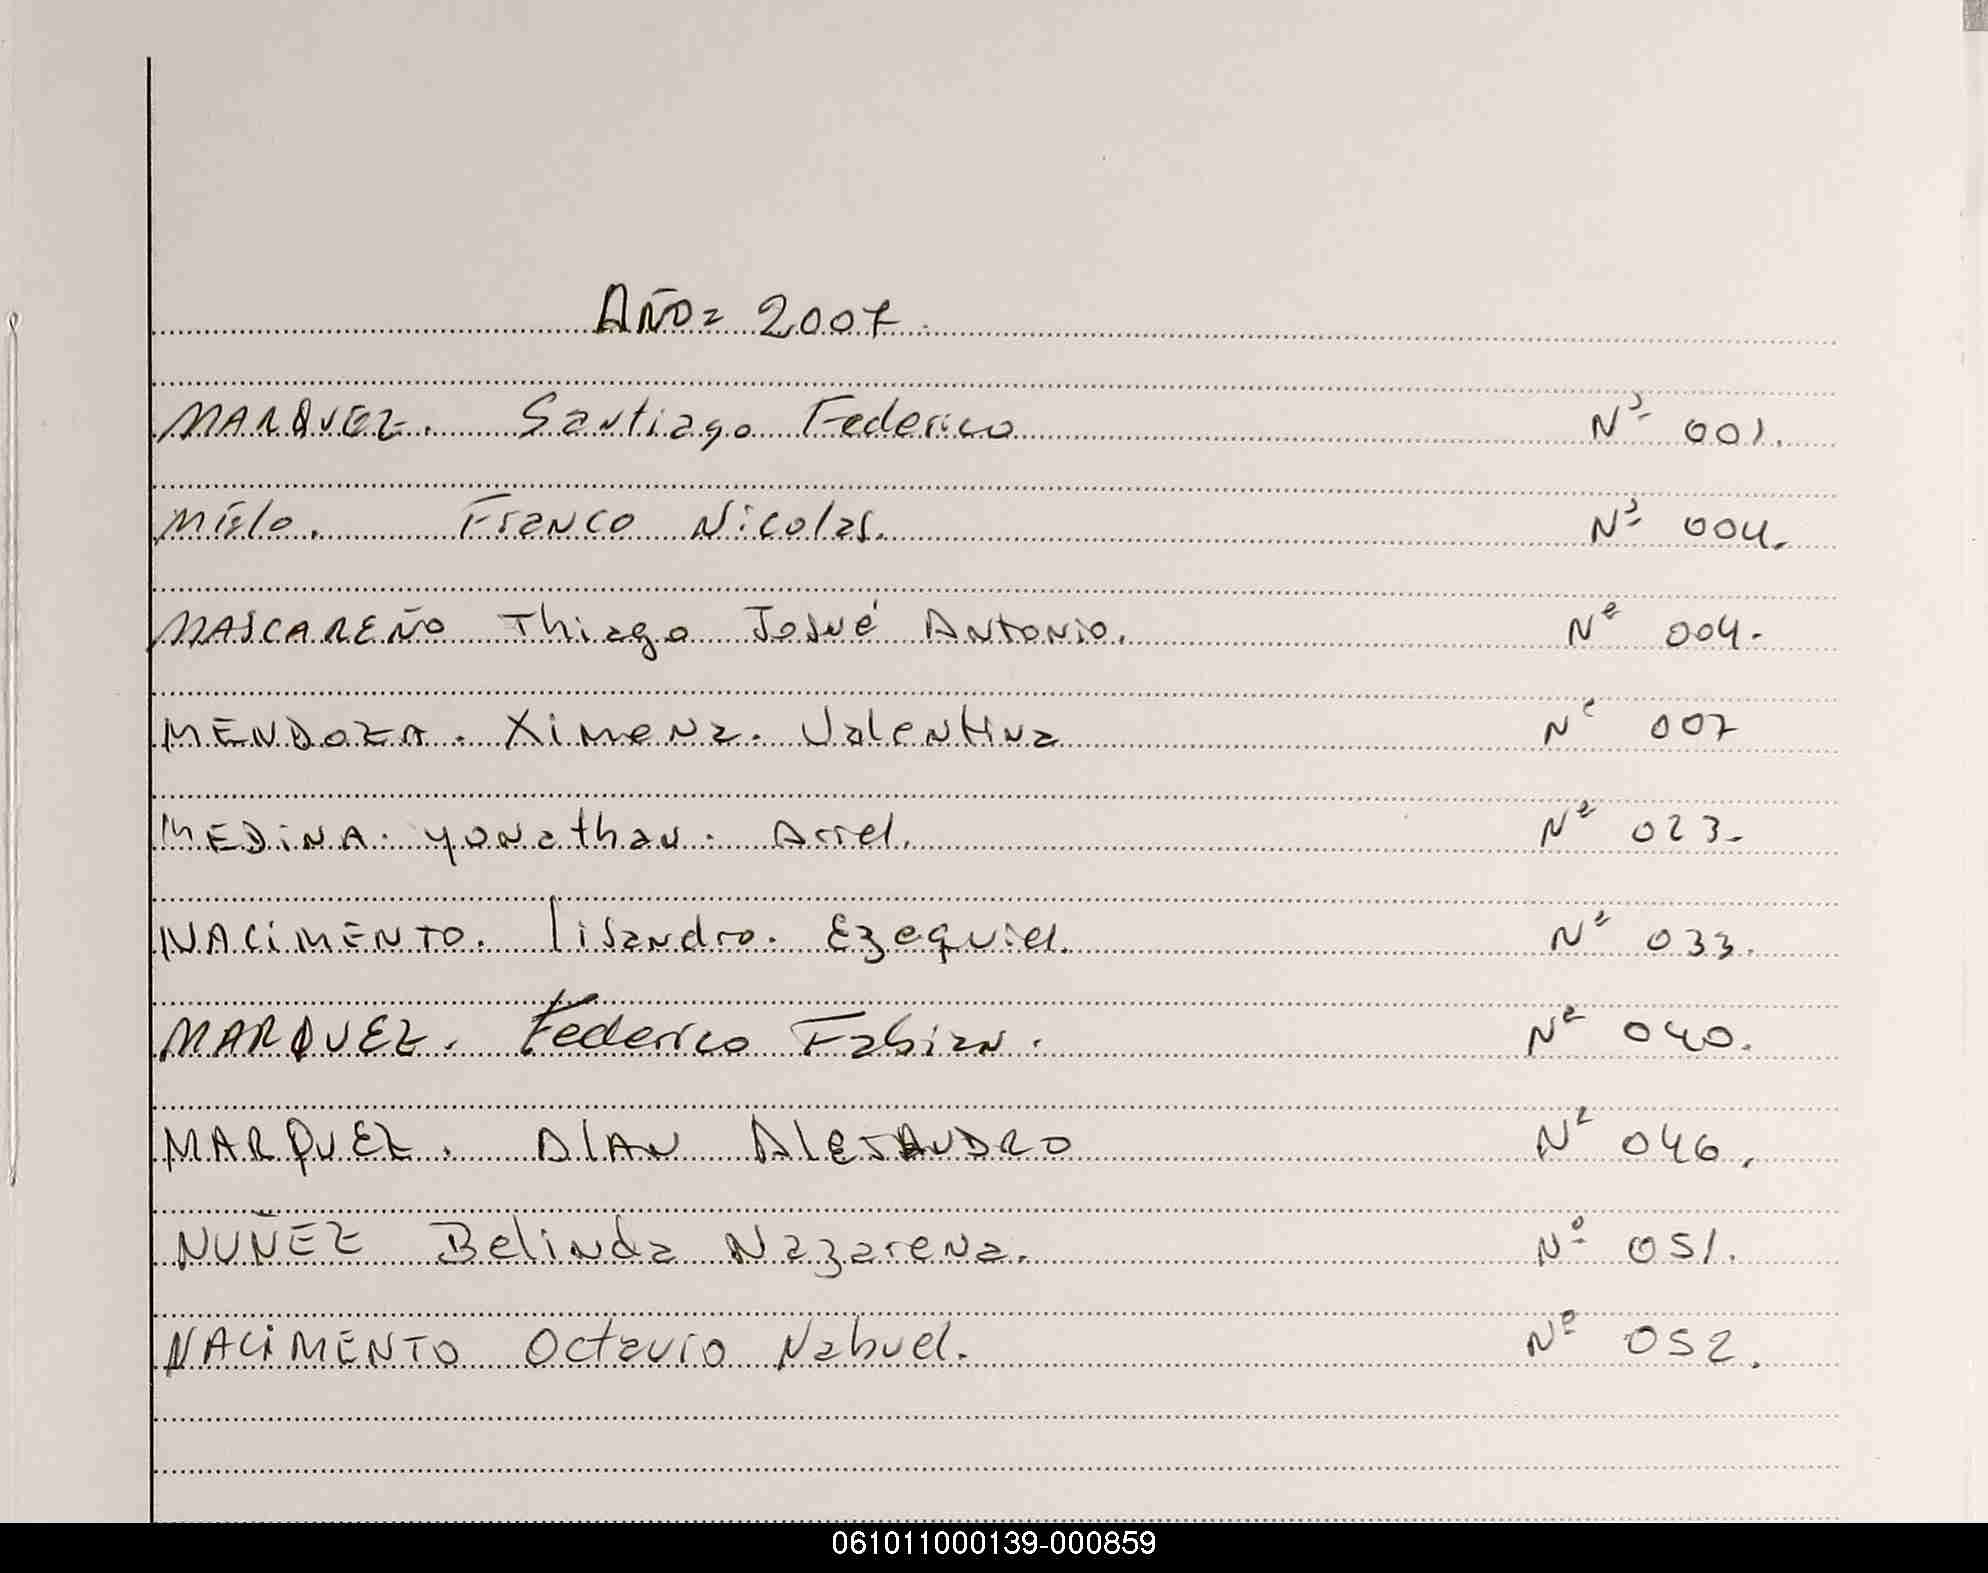 AÑO= 2007.
MARQUEZ. Santiago Federico Nº 001.
MElo. Franco Nicolas. Nº 004.
MASCAREÑO Thiago Josué Antonio. Nº 004.
MENDOZA. Ximena. Valentina Nº 007
MEDiNA. yonathan. Ariel. Nº 023.
NACiMENTO. lisandro. Ezequiel. Nº 033.
MARQUEZ. Federico Fabian. Nº 040.
MARQUEZ. AlAN AleJANDRO Nº 046.
NUÑEZ Belinda Nazarena. Nº 051.
NACiMENTO Octavio Nahuel. Nº 052.
061011000139-000859